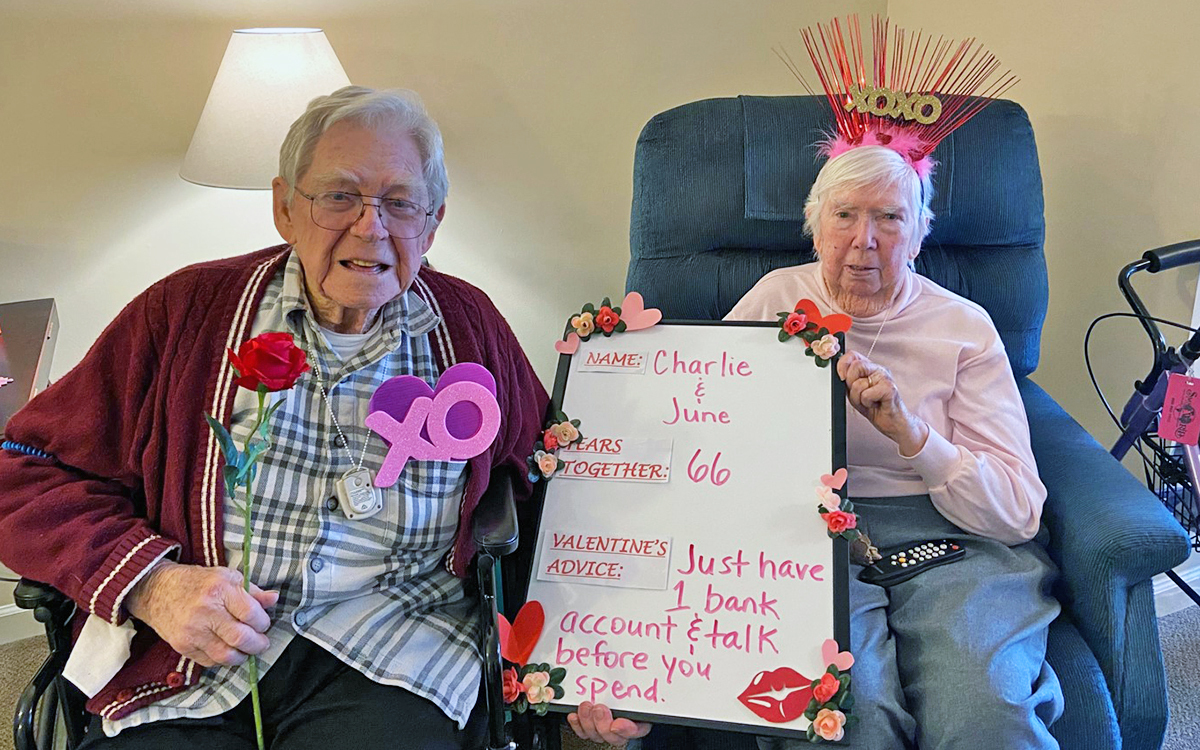 XOXO
XO
NAME: Charlie
&
June
YEARS
TOGETHER: 66
VALENTINE'S
ADVICE: Just have
1 bank
account & talk
before you
spend.